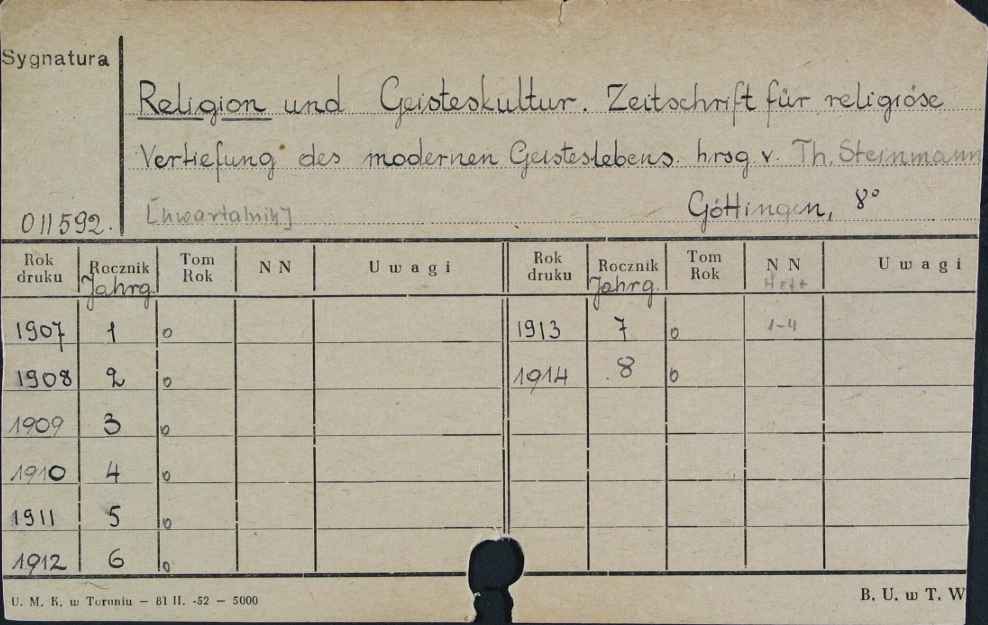 Sygnatura
Religion und Geisteskultur. Zeitschrift für religiöse
Vertiefung des modernen Geisteslebens. hrsg v. Th. Steinmann
011592. [kwartalnik] Göttingen, 8°
Rok druku Rocznik Jahrg. Tom Rok N N Uwagi Rok druku Rocznik Jahrg. Tom Rok N N Heft Uwagi
1907 1 o 1913 7 o 1-4
1908 2 o 1914 8 o
1909 3 o
1910 4 o
1911 5 o
1912 6 o
U. M. K. w Toruniu — 81 II. -52 — 5000 B. U. w T. W